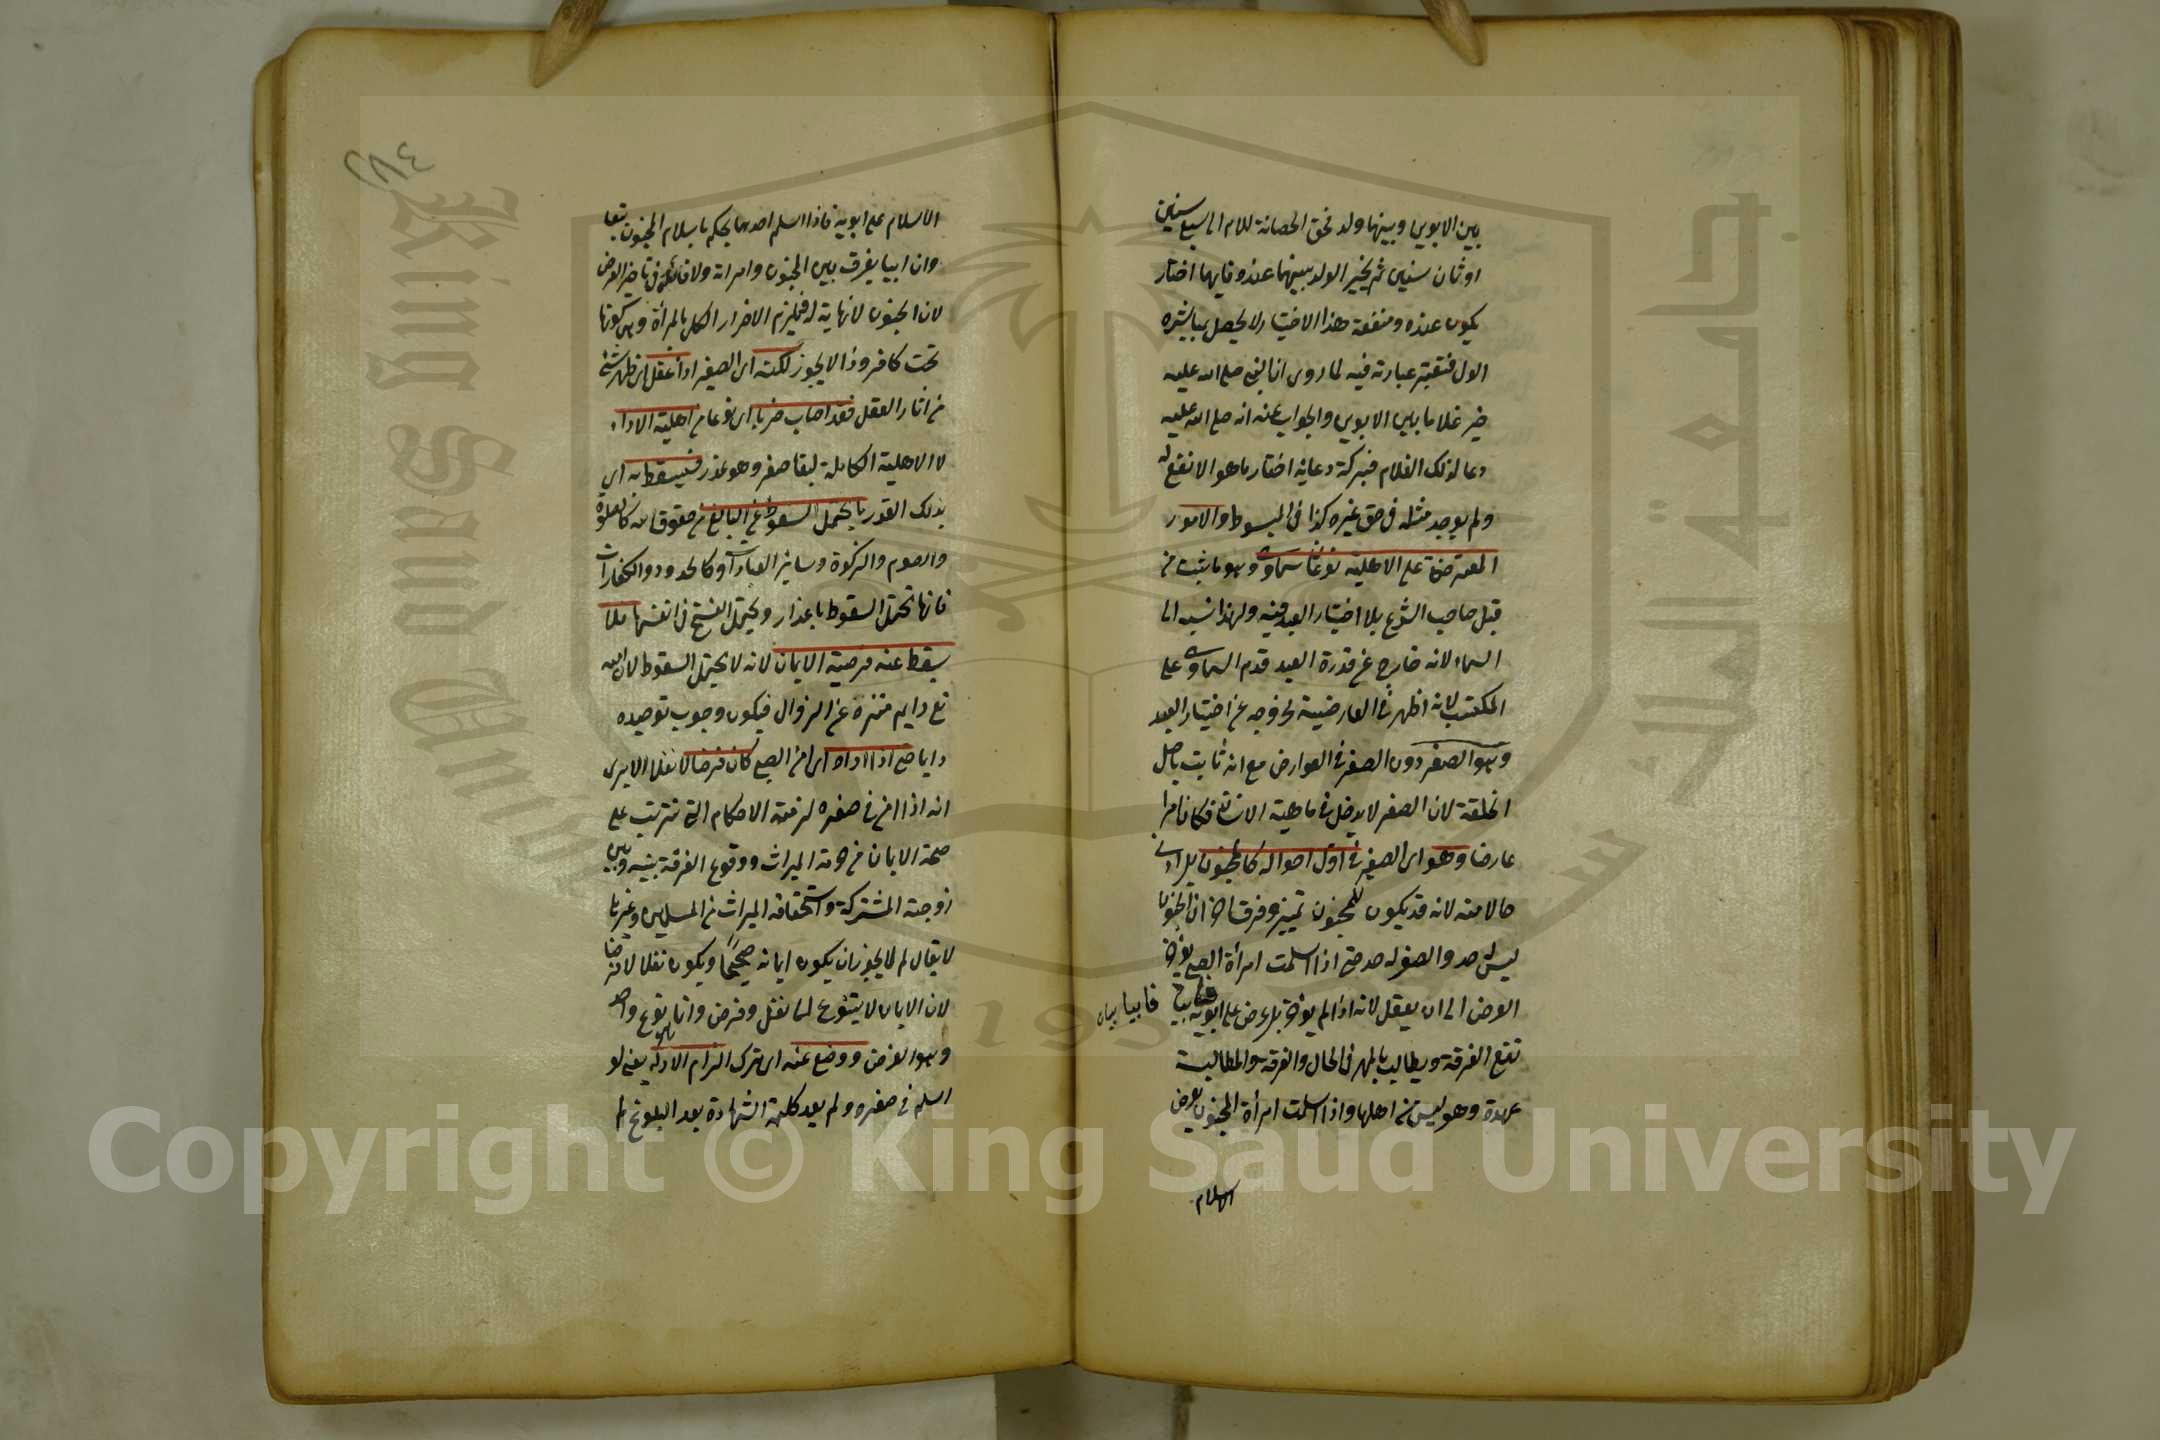 بين الابوين وبينهما ولد فحق الحضانة للام الى سبع سنين
او ثمان سنين ثم يخير الولد بينهما عنده فايهما اختار
يكون عنده ومنفعة هذا الاختيار لا يحصل بمباشرة
الولى فتعتبر عبارته فيه لما روى ان النبى صلى الله عليه
خير غلاما بين الابوين والجواب عنه انه صلى الله عليه
دعا لذلك الغلام فببركة دعائه اختار ما هو الانفع له
ولم يوجد مثله فى حق غيره كذا فى المبسوط والامور
المعترضة على الاهلية نوعان سماوى وهو ما يثبت من
قبل صاحب الشرع بلا اختيار العبد فيه ولهذا نسب الى
السماء لانه خارج عن قدرة العبد قدم السماوى على
المكتسب لانه اظهر فى العارضية لخروجه عن اختيار العبد
وهو الصغر دون الصغر فى العوارض مع انه ثابت باصل
الخلقة لان الصغر لا يدخل فى ماهية الانسان فكان امرا
عارضا وهو اى الصغير فى اول احواله كالمجنون بل ادنى
حالا منه لانه قد يكون للمجنون تمييز وفرقا ان الجنون
ليس له حد والصغر له حد حتى اذا اسلمت امرأة الصبى يؤخر
العرض الى ان يعقل لانه اذا لم يؤخر بل عرض على ابويه فابيا
فابيا بيان
تقع الفرقة ويطالب بالمهر فى الحال والفرقة والمطالبة
عهدة وهو ليس من اهلها واذا اسلمت امرأة المجنون يعرض
الاسلام
٢٨٤
الاسلام على ابويه فاذا اسلم احدهما يحكم باسلام المجنون تبعا
وان ابيا يفرق بين المجنون وامراته ولا فائدة فى تاخير العرض
لان الجنون لا نهاية له فيلزم الاضرار الكلى بالمرأة وهى كونها
تحت كافر وذا لا يجوز لكنه اى الصغير اذا عقل اى ظهر شئ
من اثار العقل فقد اصاب ضربا اى نوعا من اهلية الاداء
لا الاهلية الكاملة لبقا صغره وهو عذر فيسقط به اى
بذلك القدر ما يحتمل السقوط عن البالغ من حقوق الله كالصلوة
والصوم والزكوة وسائر العبادات وكالحدود والكفارات
فانها تحتمل السقوط باعذار ويحتمل الفسخ فى انفسها فلا
يسقط عنه فرضية الايمان لانه لا يحتمل السقوط لان الله
تع دايم منزه عن الزوال فيكون وجوب توحيده
دايما حتى اذا اداه اى امن الصبى كان فرضا لا نفلا الا يرى
انه اذا امن فى صغره لزمته الاحكام التى تترتب على
صحة الايمان من حرمة الميراث ووقوع الفرقة بينه وبين
زوجته المشتركة واستحقاقه الميراث من المسلمين وغيرها
لا يقال لم لا يجوز ان يكون ايمانه صحيحا ويكون نفلا لا فرضا
لان الايمان لا يتنوع الى نفل وفرض وانما نوع واحد
وهو الفرض ووضع عنه اى ترك الزام الاداء يعنى لو
اسلم فى صغره ولم يعد كلمة الشهادة بعد البلوغ لم
Copyright © King Saud University
King Saud University
جامعة الملك سعود
1957